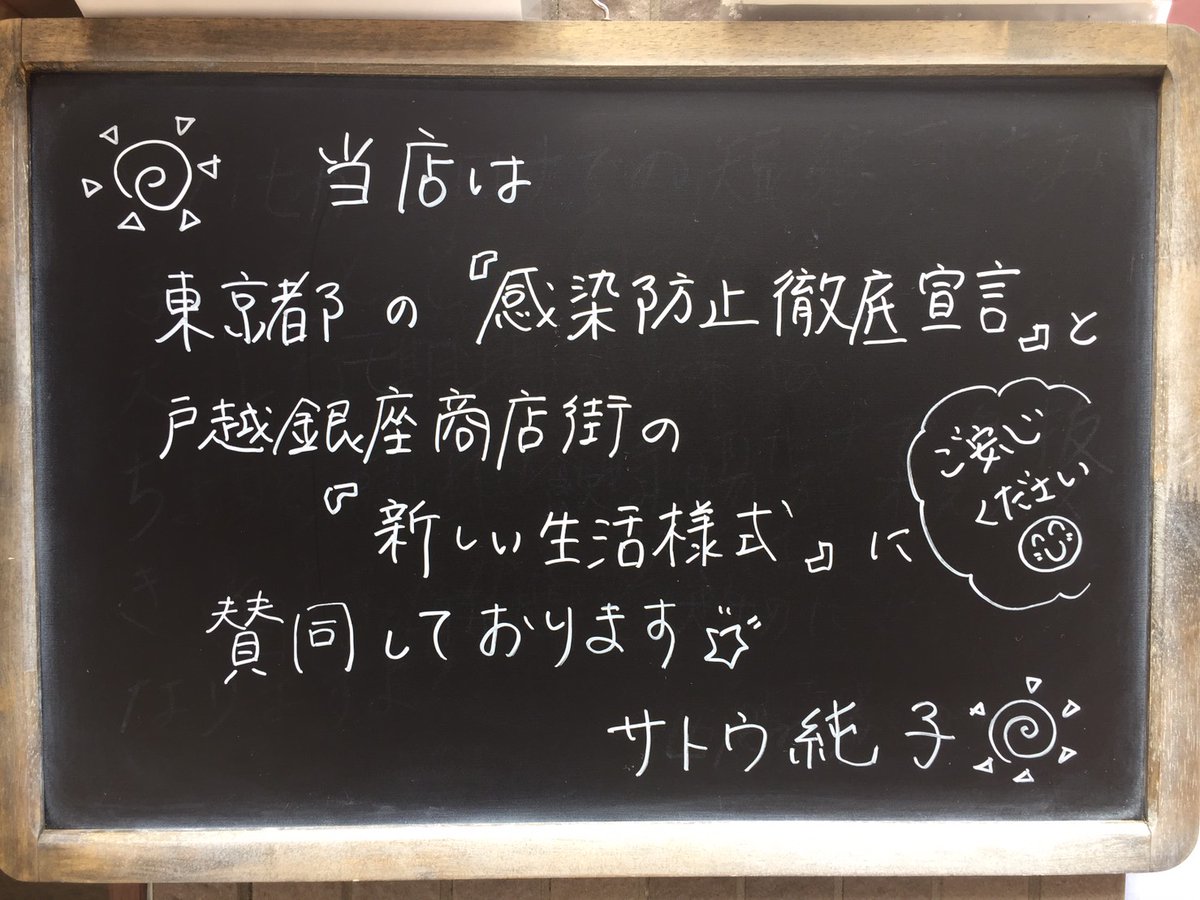 当店は
東京都の『感染防止徹底宣言』と
戸越銀座商店街の
『新しい生活様式』に
賛同しております
ご安じ
ください
サトウ純子